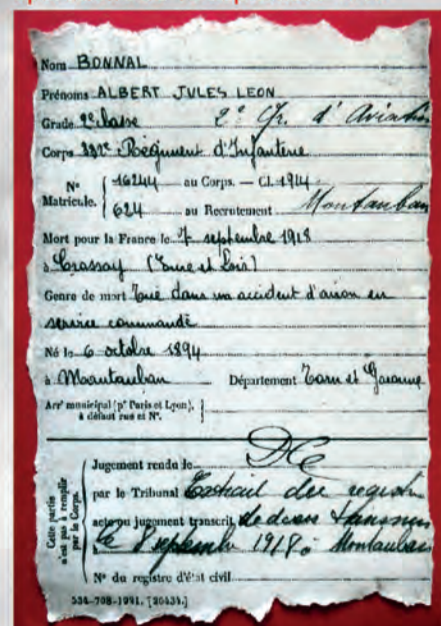 Nom BONNAL
Prénoms ALBERT JULES LEON
Grade 2e classe 2e Gr. d'Aviation
Corps Régiment d'Infanterie
N° Matricule. { 16244 au Corps. — Cl. 1914
624 au Recrutement Montauban
Mort pour la France le 7 septembre 1918
à Crossay (Eure et Loir)
Genre de mort Tué dans un accident d'avion en
service commandé
Né le 6 octobre 1894
à Montauban Département Tarn et Garonne
Arrt municipal (pr Paris et Lyon), à défaut rue et N°. }
Cette partie n'est pas à remplir par le Corps.
Jugement rendu le
par le Tribunal Extrait des registres
acte ou jugement transcrit de décès transmis
le 8 septembre 1918 à Montauban
N° du registre d'état civil
534-708-1921. [26434.]